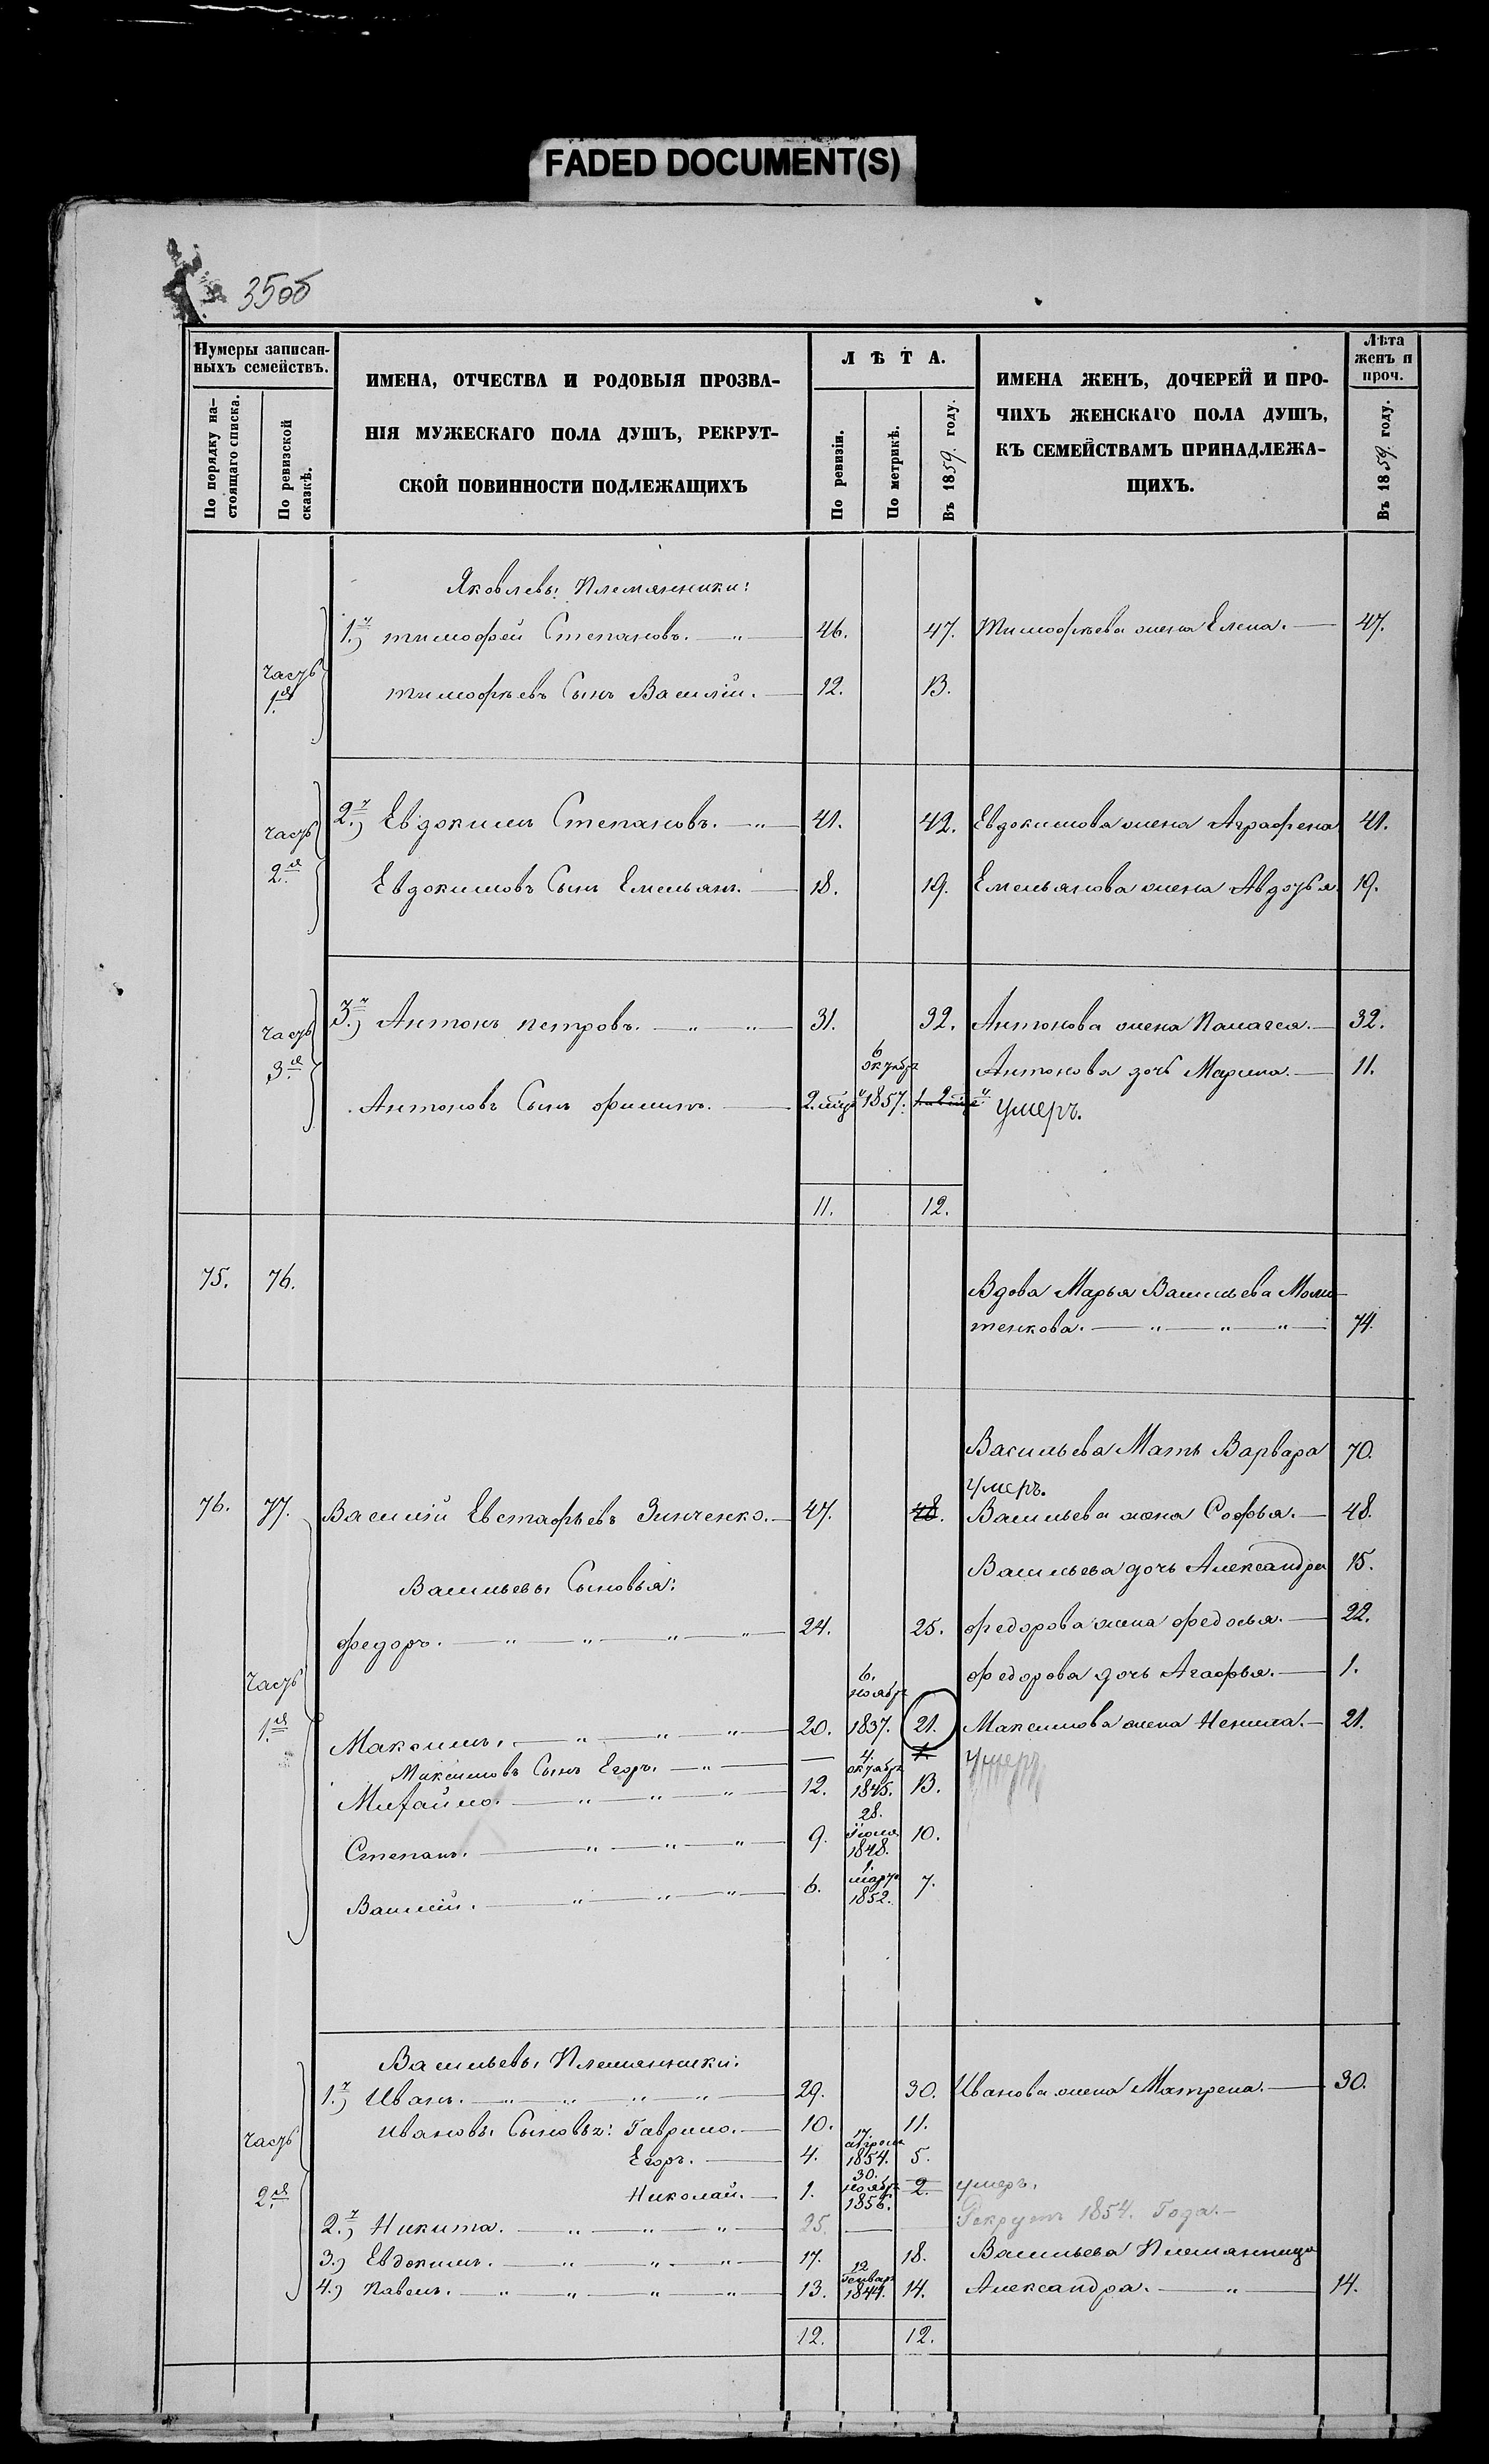 FADED DOCUMENT(S)
35об
Нумеры записан-
ныхъ семействъ.
По порядку на-
стоящаго списка.
По ревизской
сказкѣ.
ИМЕНА, ОТЧЕСТВА И РОДОВЫЯ ПРОЗВА-
НІЯ МУЖЕСКАГО ПОЛА ДУШЪ, РЕКРУТ-
СКОЙ ПОВИННОСТИ ПОДЛЕЖАЩИХЪ
ЛѢТА.
По ревизіи.
По метрикѣ.
Въ 1859 году.
ИМЕНА ЖЕНЪ, ДОЧЕРЕЙ И ПРО-
ЧИХЪ ЖЕНСКАГО ПОЛА ДУШЪ,
КЪ СЕМЕЙСТВАМЪ ПРИНАДЛЕЖА-
ЩИХЪ.
Лѣта
женъ и
проч.
Въ 1859 году.
Яковлевы Племянники:
1.й) Тимофей Степановъ. 46. 47. Тимофѣева жена Елена. 47.
часть
1я
Тимофѣевъ Сынъ Василій. 12. 13.
2.й) Евдокимъ Степановъ. 41. 42. Евдокимова жена Аграфена 41.
часть
2.я
Евдокимовъ Сынъ Емельянъ. 18. 19. Емельянова жена Авдотья. 19.
3.й) Антонъ Петровъ. 31. 32. Антонова жена Палагея. 32.
часть
3.я
6
октябр
Антонова дочь Марина. 11.
Антоновъ Сынъ Филипъ. 2.мцъ 1857. умеръ.
11. 12.
75. 76. Вдова Марья Васильева Моли-
тенкова. 74.
Васильева Мать Варвара 70.
умеръ.
76. 77. Василій Евстафьевъ Зинченко. 47. 48. Васильева жена Софья. 48.
Васильева дочь Александра 15.
Васильевы Сыновья:
Федоръ. 24. 25. Федорова жена Федосья. 22.
часть
1.я
6.
ноябр
Федорова дочь Агафья. 1.
Максимъ. 20. 1837. 21. Максимова жена Ненила. 21.
Максимовъ Сынъ Егоръ. — 1. умеръ
4.
октябр
Михайло. 12. 1845. 13.
28.
Іюля
Степанъ. 9. 1848. 10.
1.
март
Василій. 6. 1852. 7.
Васильевы Племянники:
1.й) Иванъ. 29. 30. Иванова жена Матрена. 30.
Ивановы Сыновья: Гаврило. 10. 11.
часть
2.я
17.
апреля
Егоръ. 4. 1854. 5.
30.
ноябр
Николай. 1. 1856. 2. умеръ.
2.й) Никита. 25. — Рекрутъ 1854. Года.
3.) Евдокимъ. 17. 18. Васильева Племянница
12
Генвар
4.) Павелъ. 13. 1844. 14. Александра. 14.
12. 12.